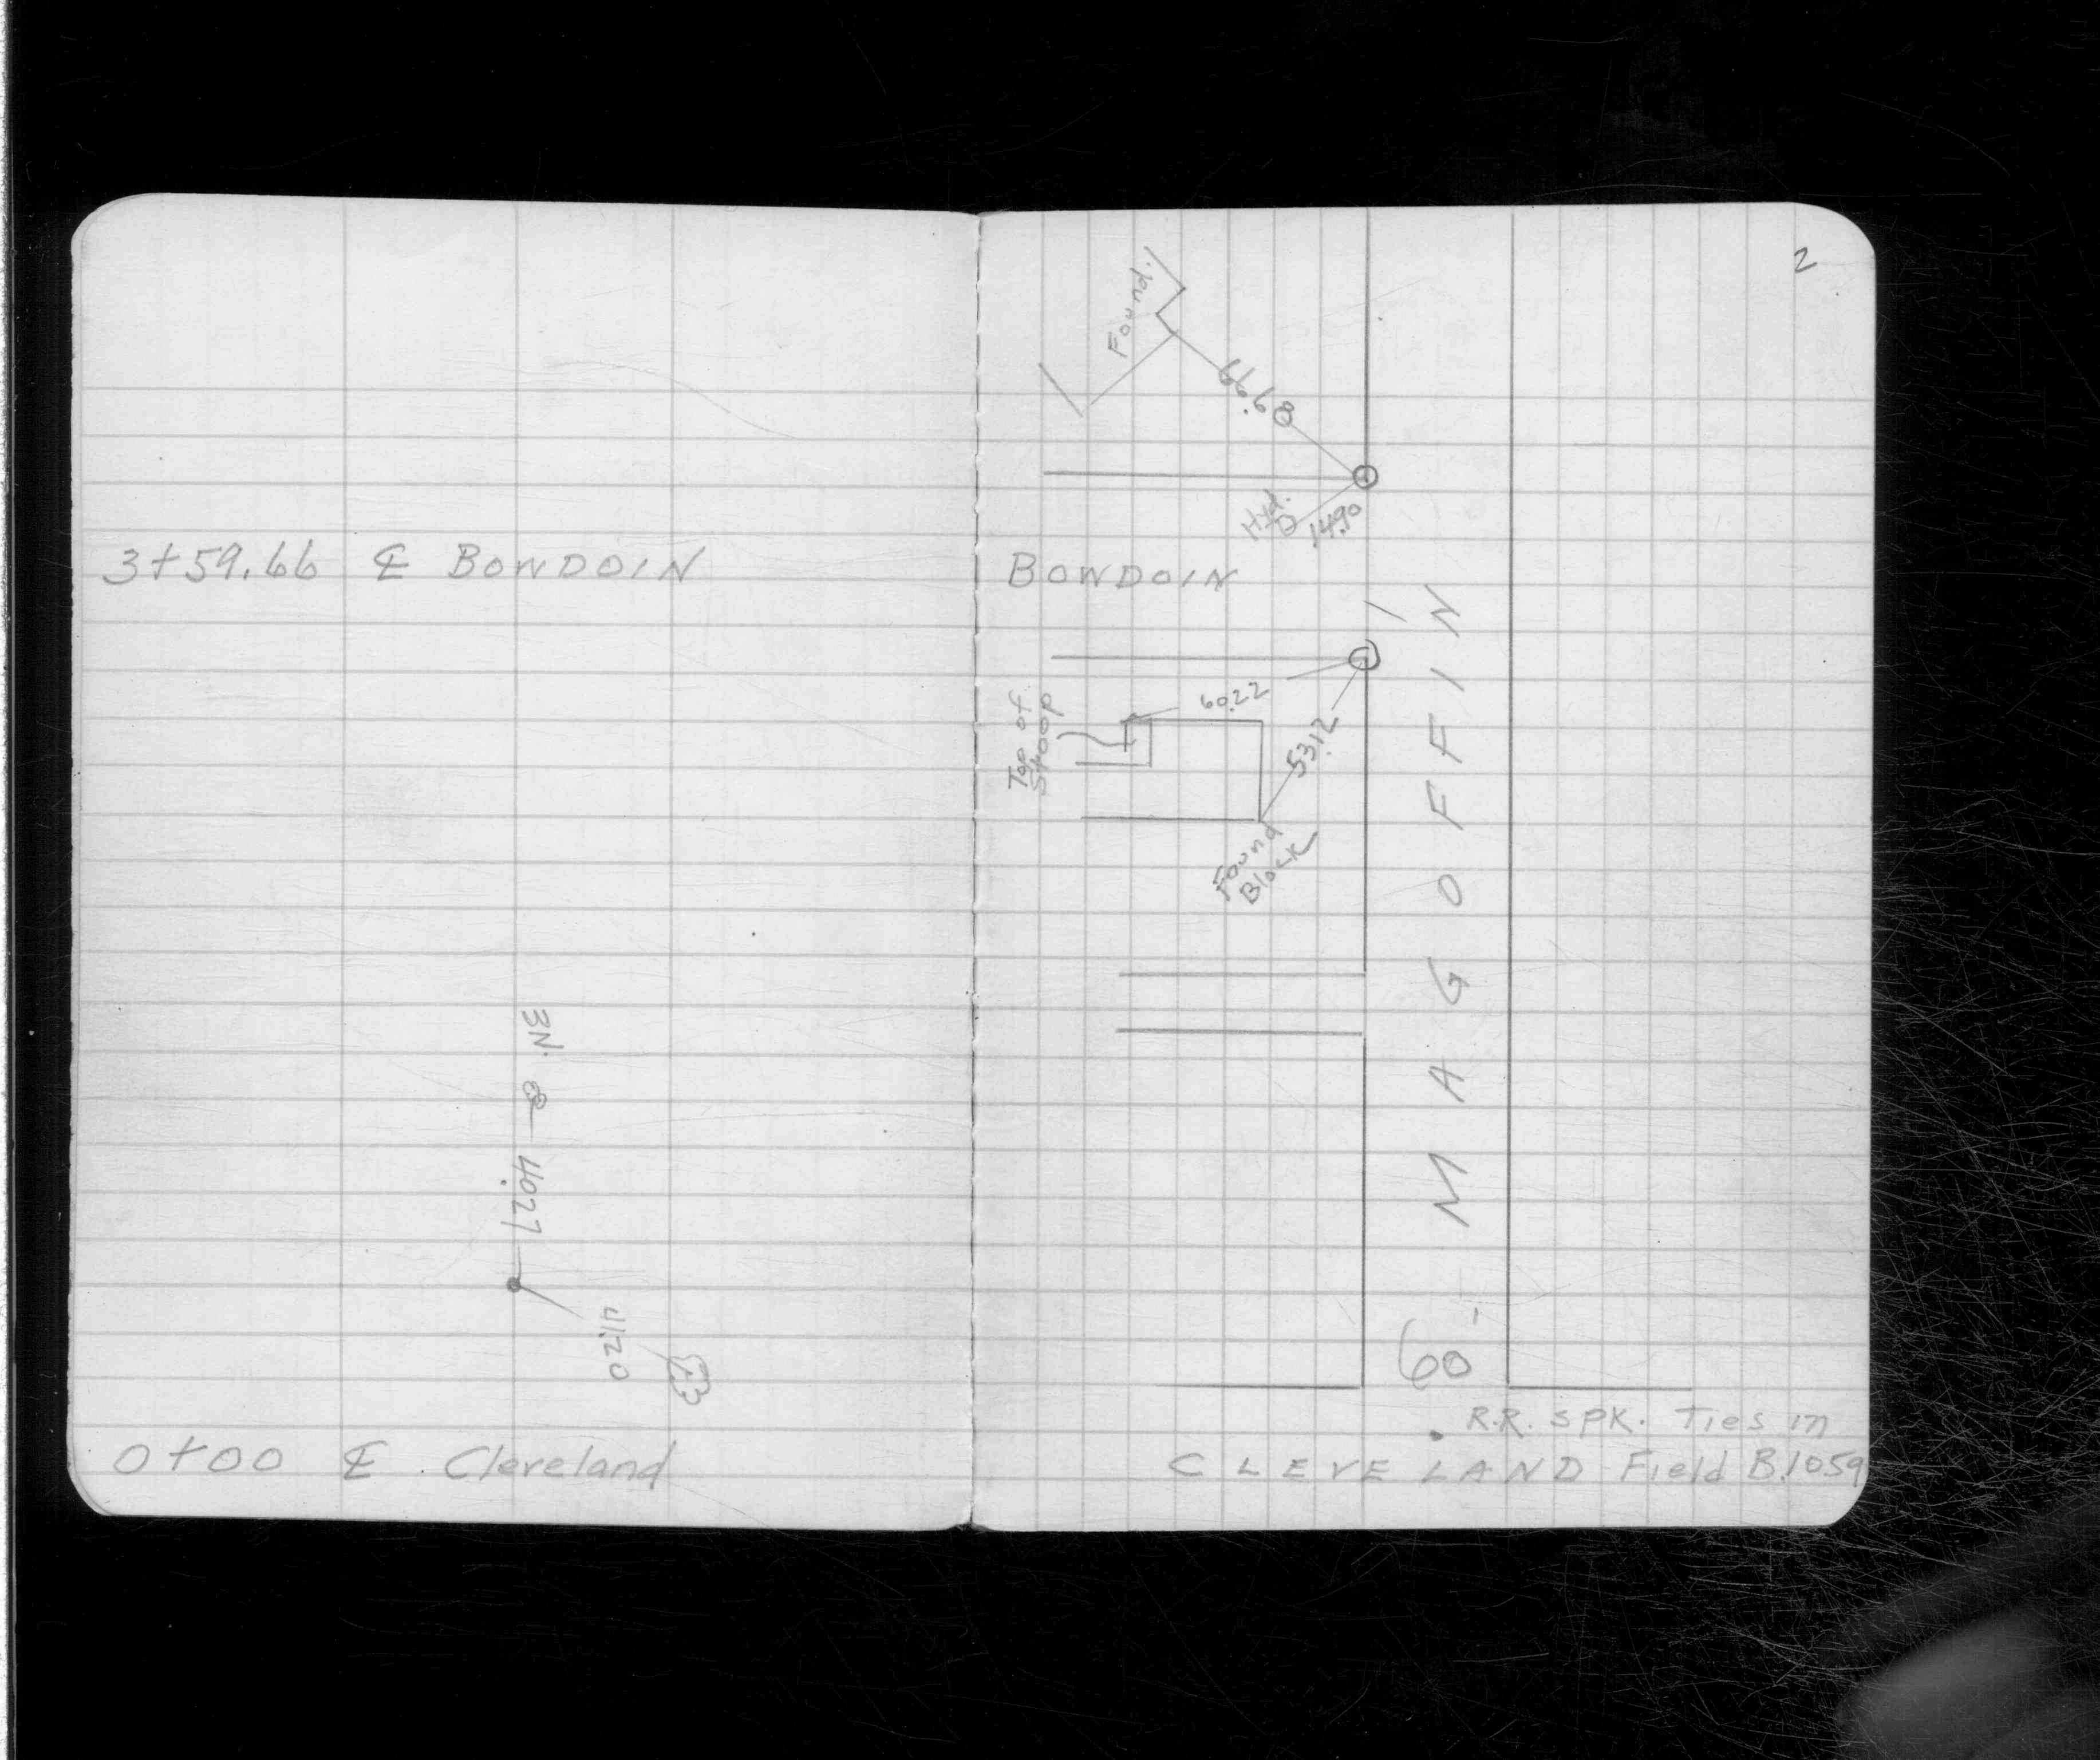 2
Found.
66.68
Hyd.
14.90
3+59.66 ℄ BOWDOIN
BOWDOIN
60.22
53.12
Top of
Stoop
Found
Block
MAGOFFIN
3N.
41.20
60
R.R. SPK. Ties in
0+00 ℄ Cleveland
CLEVELAND Field B.1059